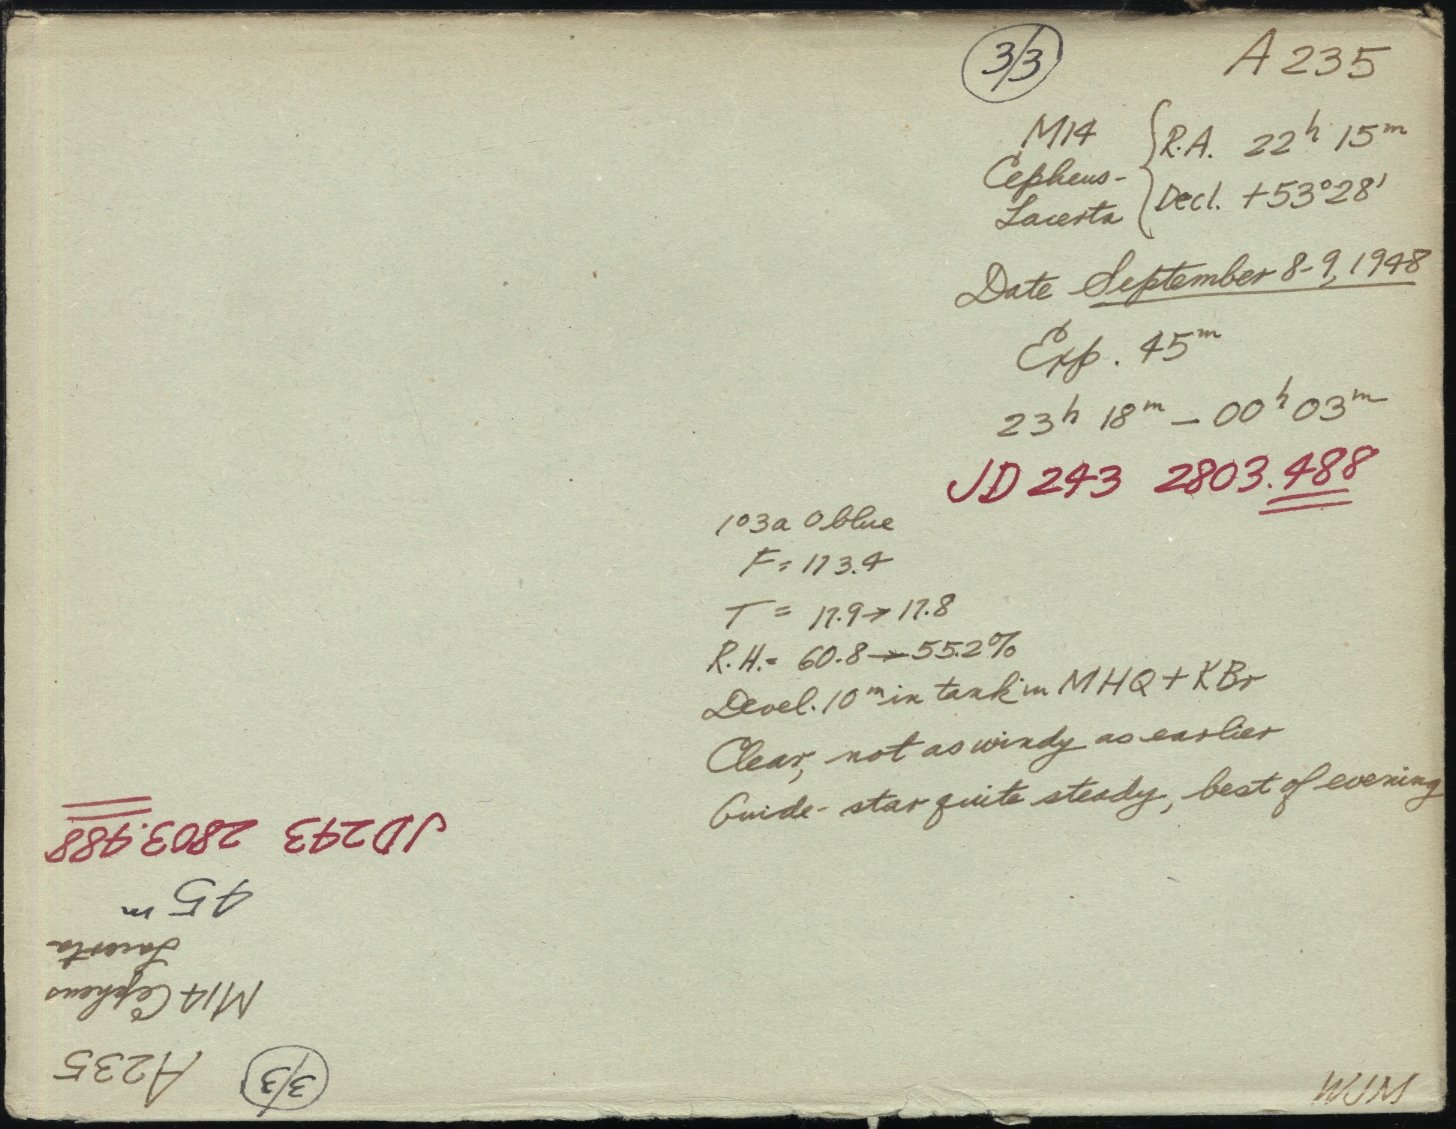 3/3 A 235
M14 R.A. 22h 15m
Cepheus-
Lacerta Decl. +53°28'
Date September 8-9, 1948
Exp. 45m
23h 18m – 00h 03m
JD 243 2803.488
103a O blue
F = 173.4
T = 17.9 → 17.8
R.H. = 60.8 → 55.2%
Devel. 10m in tank in MHQ + KBr
Clear, not as windy as earlier
Guide-star quite steady, best of evening
3/3 A235
M14 Cepheus
Lacerta
45 m
JD 243 2803.488